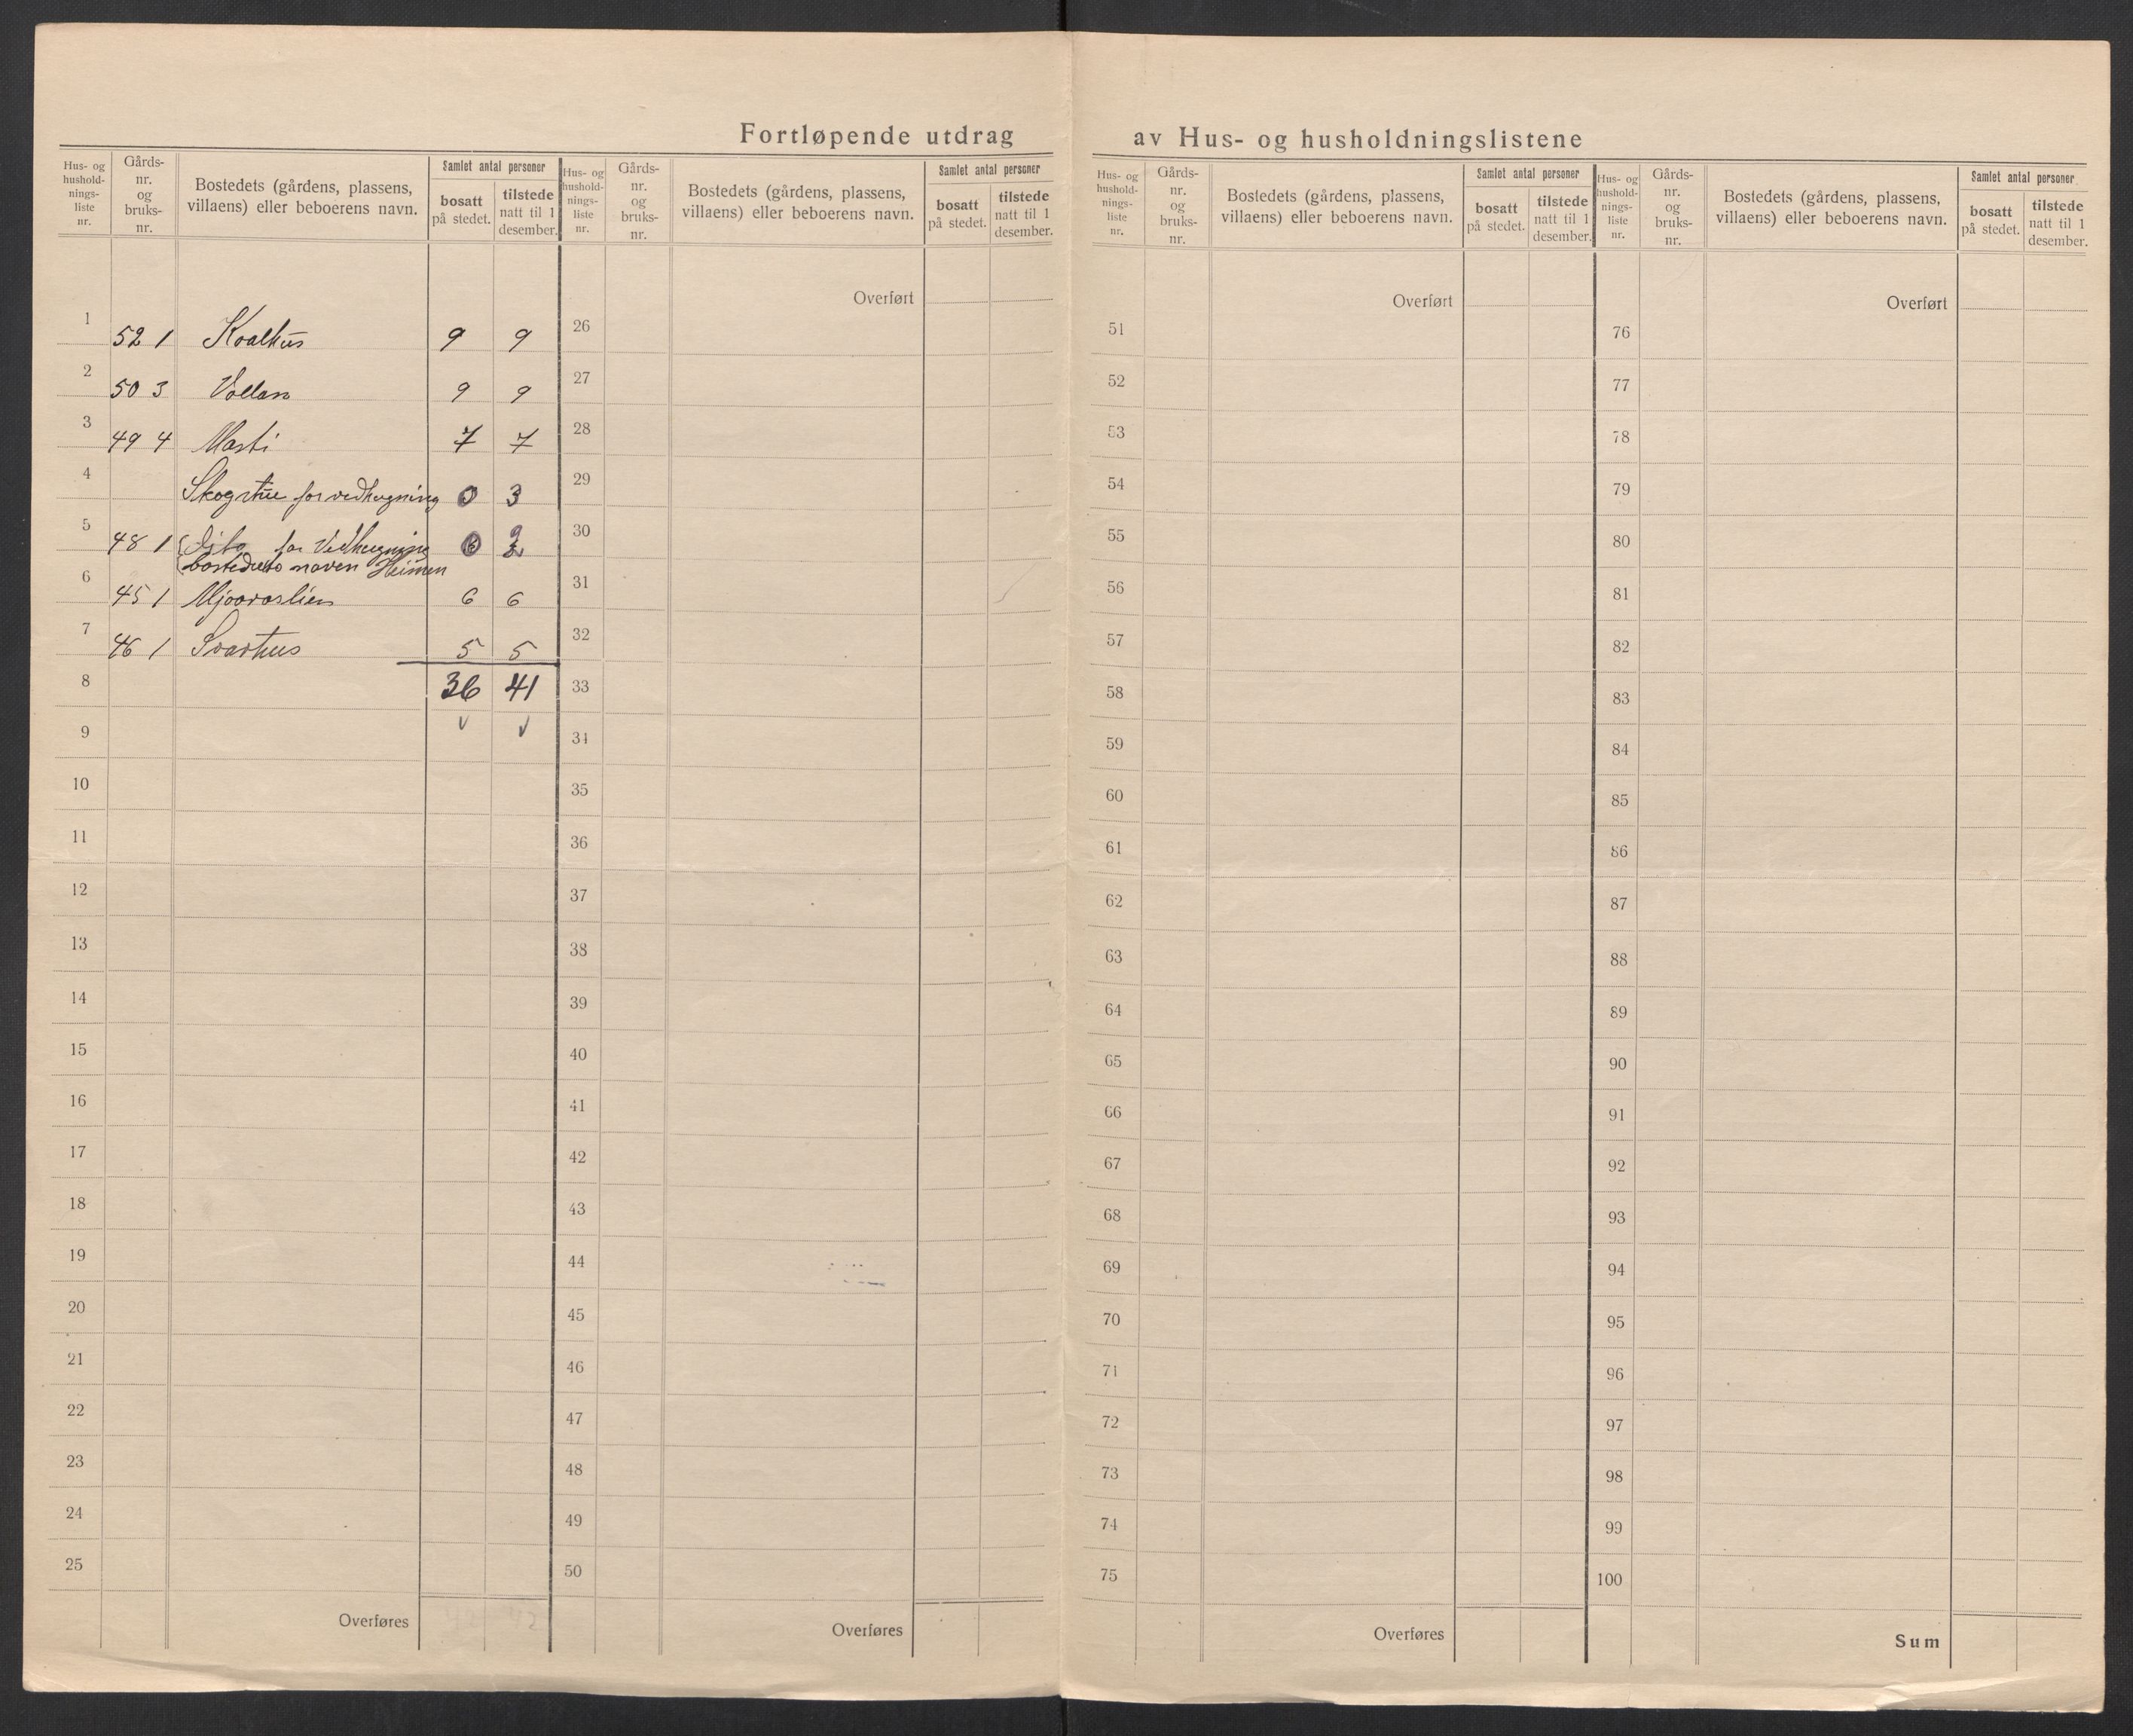 Fortløpende utdrag av Hus- og husholdningslistene
Hus- og hushold- nings- liste nr. Gårds- nr. og bruks- nr. Bostedets (gårdens, plassens, villaens) eller beboerens navn. Samlet antal personer bosatt på stedet. tilstede natt til 1 desember.
1 52 1 Kvalhus 9 9
2 50 3 Vollan 9 9
3 49 4 Masti 7 7
4 Skogstue for vedhugning 0 3
5 48 1 for Vedhugning 0 2
bostedets naven Heimen
6 45 1 Mjovaslien 6 6
7 46 1 Svarhus 5 5
8 36 41
9
10
11
12
13
14
15
16
17
18
19
20
21
22
23
24
25
Overføres
Hus- og hushold- nings- liste nr. Gårds- nr. og bruks- nr. Bostedets (gårdens, plassens, villaens) eller beboerens navn. Samlet antal personer bosatt på stedet. tilstede natt til 1 desember.
Overført
26
27
28
29
30
31
32
33
34
35
36
37
38
39
40
41
42
43
44
45
46
47
48
49
50
Overføres
Hus- og hushold- nings- liste nr. Gårds- nr. og bruks- nr. Bostedets (gårdens, plassens, villaens) eller beboerens navn. Samlet antal personer bosatt på stedet. tilstede natt til 1 desember.
Overført
51
52
53
54
55
56
57
58
59
60
61
62
63
64
65
66
67
68
69
70
71
72
73
74
75
Overføres
Hus- og hushold- nings- liste nr. Gårds- nr. og bruks- nr. Bostedets (gårdens, plassens, villaens) eller beboerens navn. Samlet antal personer bosatt på stedet. tilstede natt til 1 desember.
Overført
76
77
78
79
80
81
82
83
84
85
86
87
88
89
90
91
92
93
94
95
96
97
98
99
100
Sum